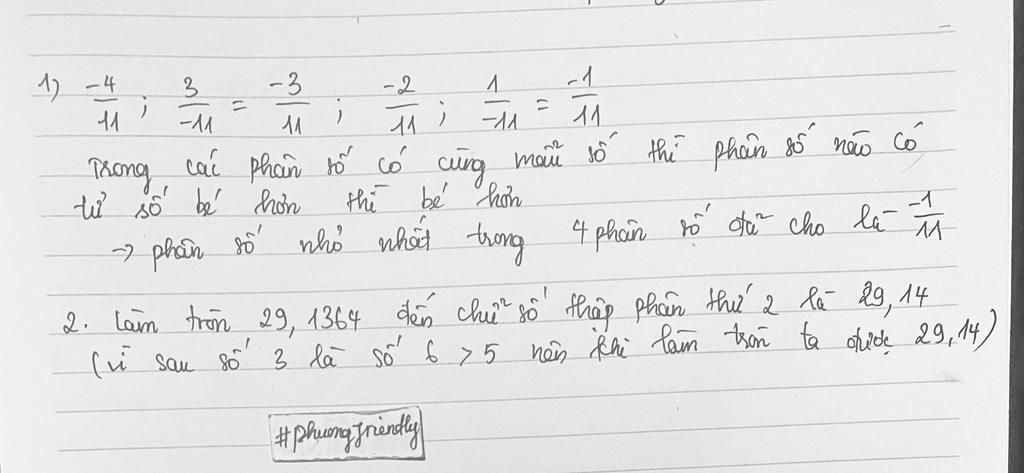 1) -4/11 ; 3/-11 = -3/11 ; -2/11 ; 1/-11 = -1/11
Trong các phân số có cùng mẫu số thì phân số nào có
tử số bé hơn thì bé hơn
→ phân số nhỏ nhất trong 4 phân số đã cho là -1/11
2. Làm tròn 29,1364 đến chữ số thập phân thứ 2 là 29,14
(vì sau số 3 là số 6 > 5 nên khi làm tròn ta được 29,14)
#phuongfriendly